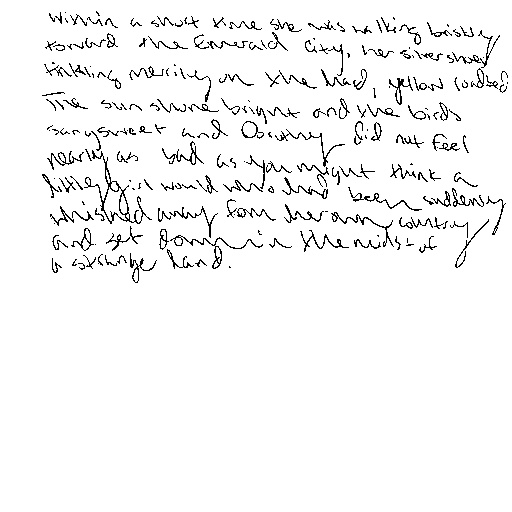 Within a short time she was walking briskly
toward the Emerald City, her silver shoes
tinkling merrily on the hard, yellow roadbed.
The sun shone bright and the birds
sang sweet and Dorothy did not feel
nearly as bad as you might think a
little girl would who had been suddenly
whisked away from her own country
and set down in the midst of
a strange land.